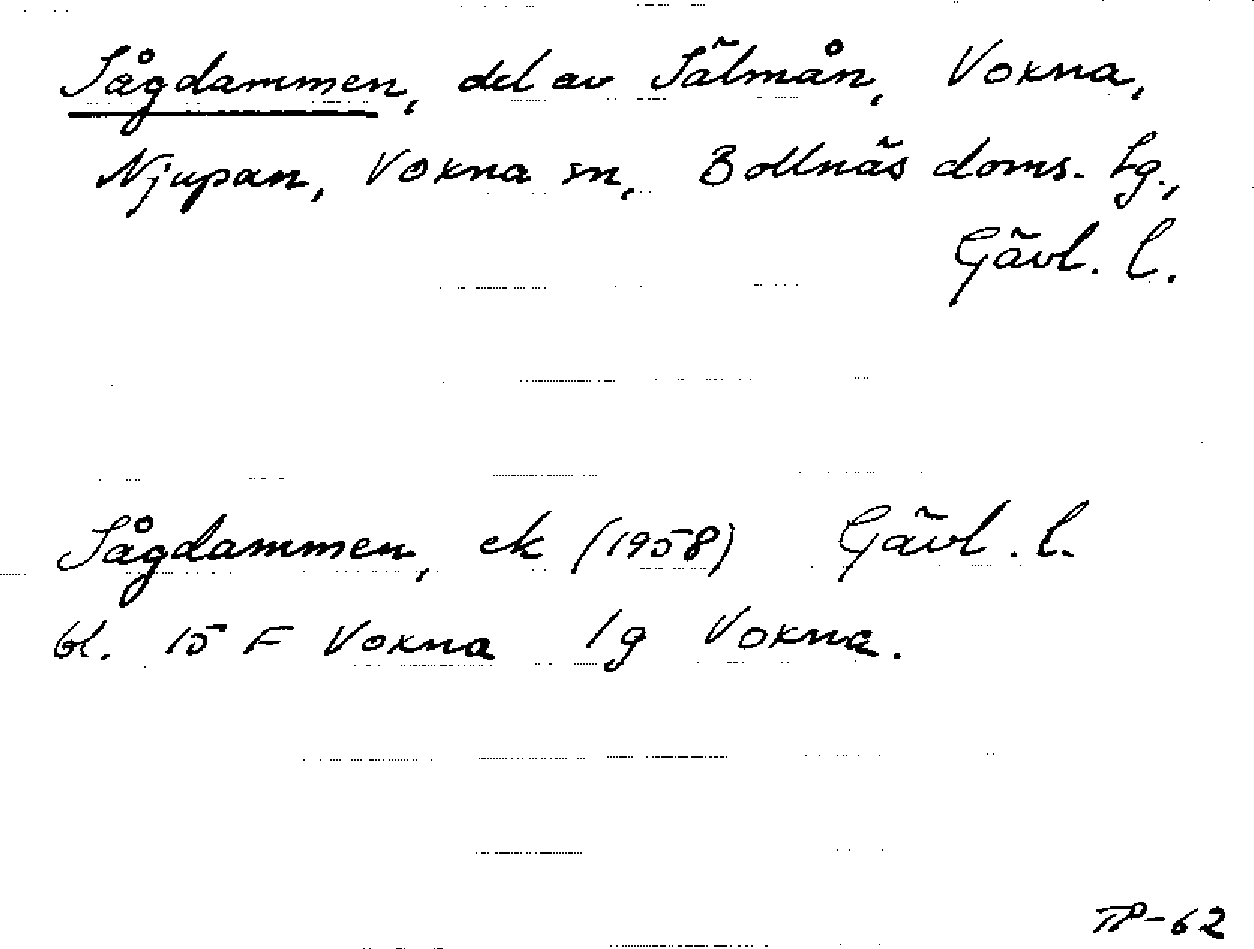 Sågdammen, del av Sälmån, Voxna,
Njupan, Voxna sn, Bollnäs doms. lg.,
Gävl. l.
Sågdammen, ek (1958) Gävl. l.
bl. 15 F Voxna 1g Voxna.
TP-62